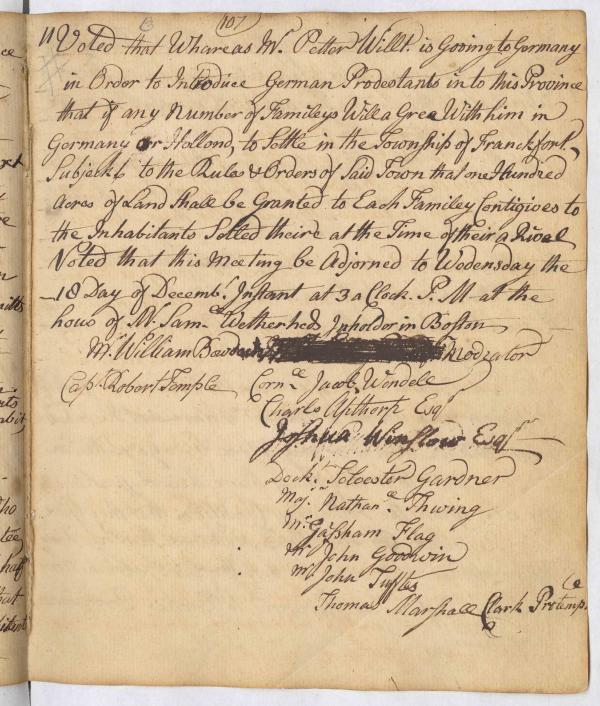 107
11 Voted that Whereas Mr. Petter Willt. is Gooing to Germany
in Order to Introduce German Prodestants in to this Province
that if any Number of Famileys Will a Gree With him in
Germany or Hollond, to Settle in the Township of Franckfort,
Subject to the Rules & Orders of Said Town that one Hundred
Acres of Land Shall be Granted to Each Familey Contigioes to
the Inhabitants Setled theire at the Time of their a Rival
Voted that this Meeting be Adjorned to Wodensday the
18 Day of Decembr. Instant at 3 a Clock P. M at the
hous of Mr. Saml. Wetherheds Inholdor in Boston
Mr. William Bowdoin Modrator
Capt. Robert Temple Cornl. Jacob Wendell
Charles Apthorp Esqr
Joshua Winslow Esqr
Dockr. Selvester Gardner
Majr. Nathanl. Thwing
Mr. Gasham Flag
Mr. John Goodwin
Mr. John Tuftes
Thomas Marshall Clark Protemp.